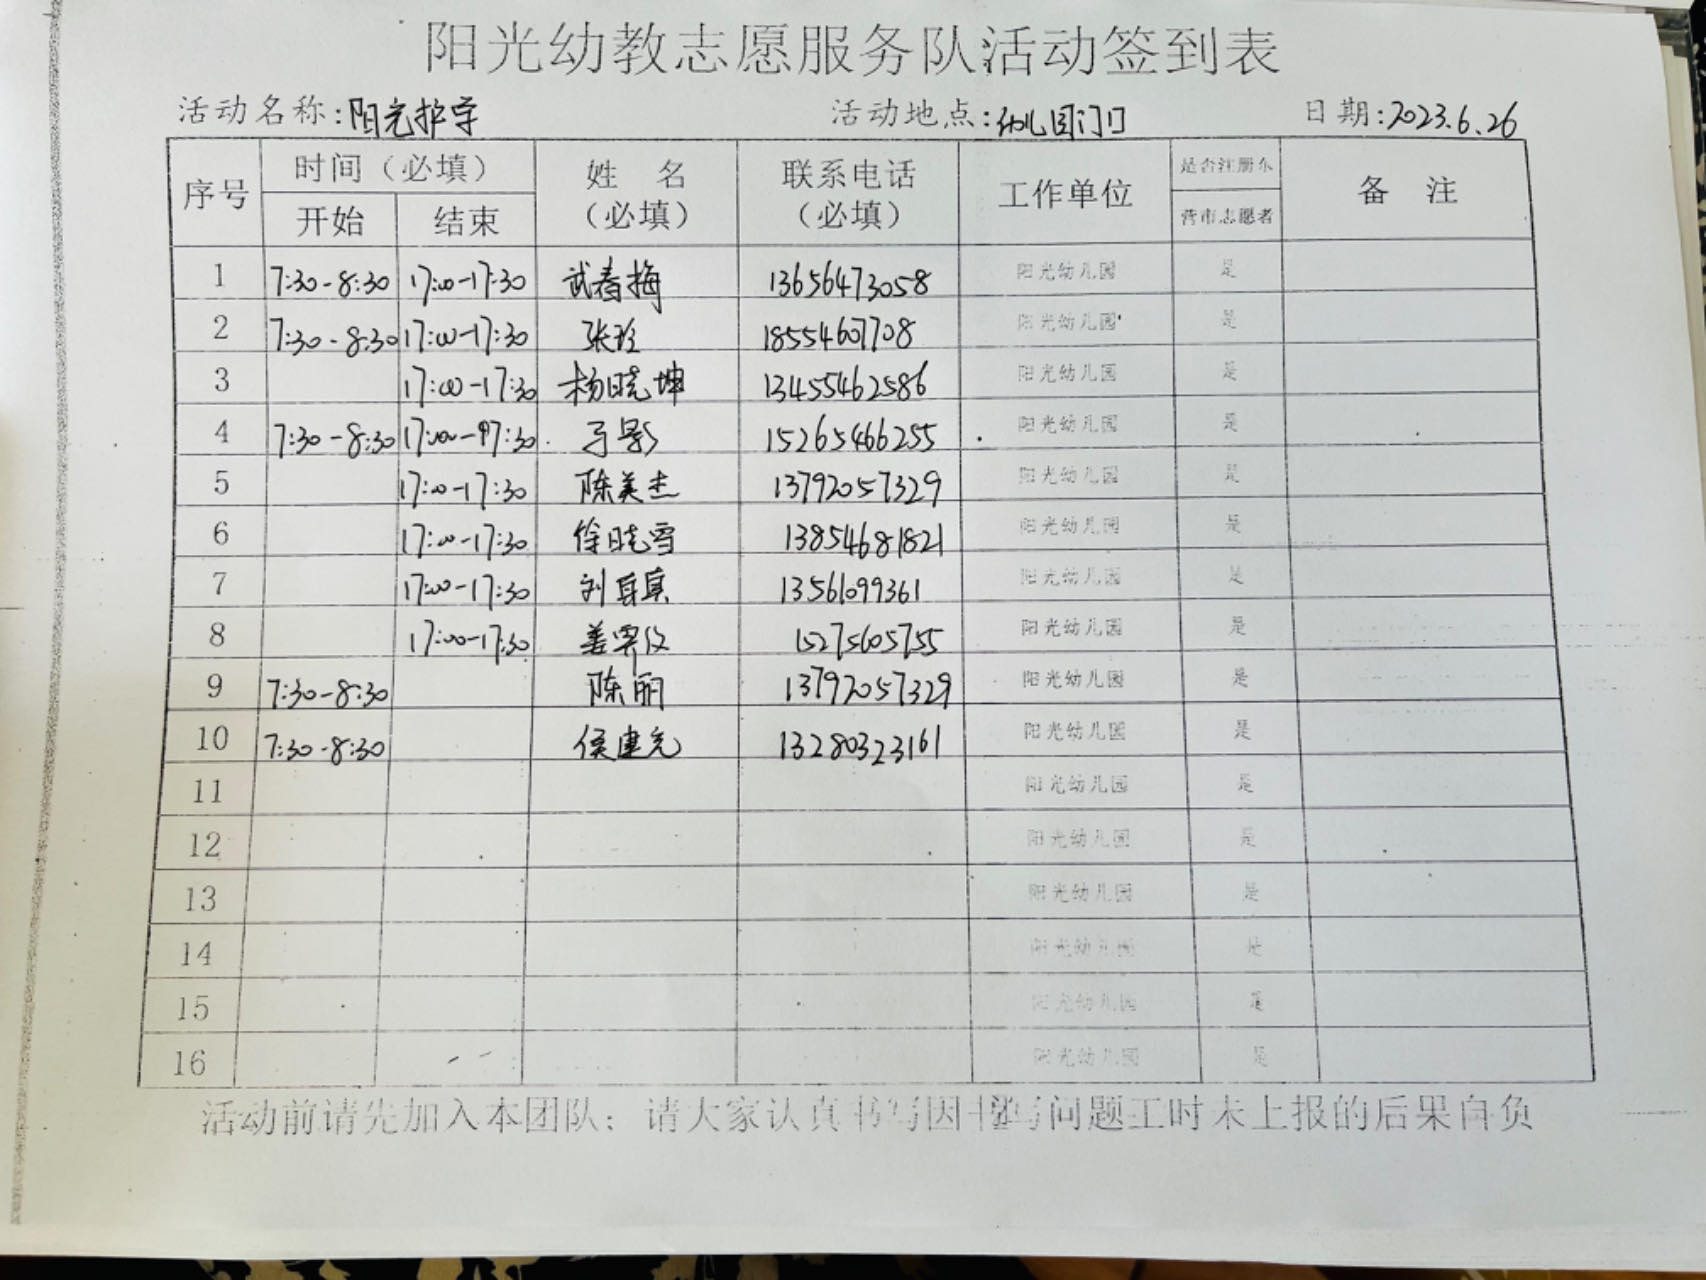 阳光幼教志愿服务队活动签到表
活动名称:阳光护学 活动地点:幼儿园门口 日期:2023.6.26
序号 时间（必填） 姓 名（必填） 联系电话（必填） 工作单位 是否注册东营市志愿者 备 注
开始 结束
1 7:30-8:30 17:00-17:30 武春梅 13656473058 阳光幼儿园 是
2 7:30-8:30 17:00-17:30 张玲 18554607708 阳光幼儿园 是
3 17:00-17:30 杨晓坤 13455462586 阳光幼儿园 是
4 7:30-8:30 17:00-17:30 15265466255 阳光幼儿园 是
5 17:00-17:30 陈美杰 13792057329 阳光幼儿园 是
6 17:00-17:30 徐晓雪 13854681821 阳光幼儿园 是
7 17:00-17:30 刘 13561099361 阳光幼儿园 是
8 17:00-17:30 姜 15275605755 阳光幼儿园 是
9 7:30-8:30 陈丽 13792057329 阳光幼儿园 是
10 7:30-8:30 侯建光 13280323161 阳光幼儿园 是
11 阳光幼儿园 是
12 阳光幼儿园 是
13 阳光幼儿园 是
14 阳光幼儿园 是
15 阳光幼儿园 是
16 阳光幼儿园 是
活动前请先加入本团队；请大家认真书写因书写问题工时未上报的后果自负